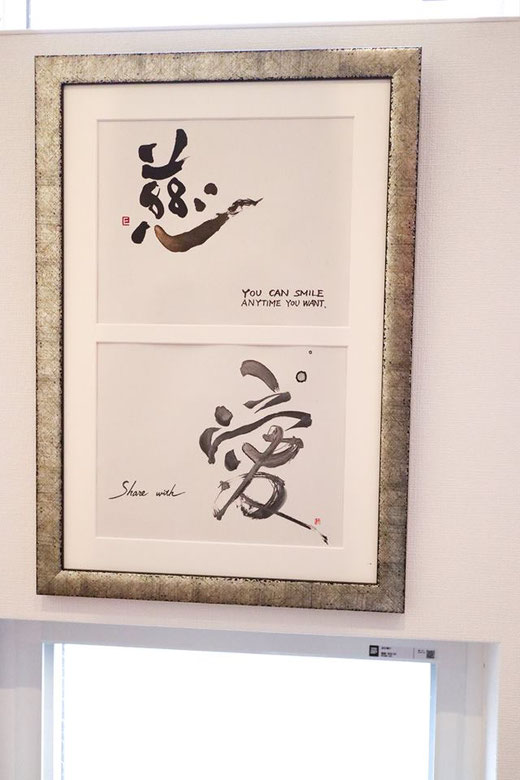 慈
YOU CAN SMILE
ANYTIME YOU WANT.
愛
Share with